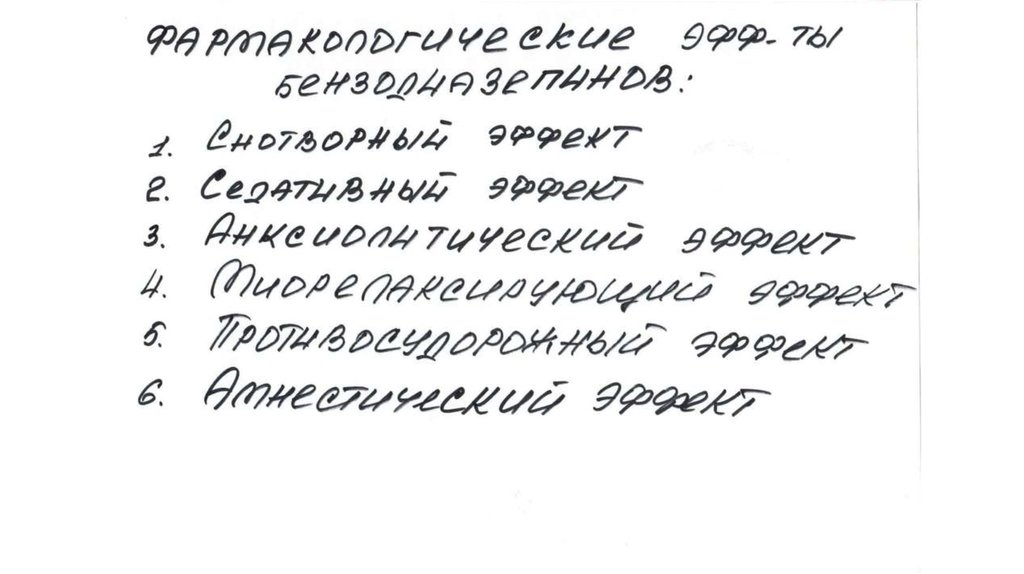 ФАРМАКОЛОГИЧЕСКИЕ ЭФФ-ТЫ
БЕНЗОДИАЗЕПИНОВ:
1. Снотворный эффект
2. Седативный эффект
3. Анксиолитический эффект
4. Миорелаксирующий эффект
5. Противосудорожный эффект
6. Амнестический эффект